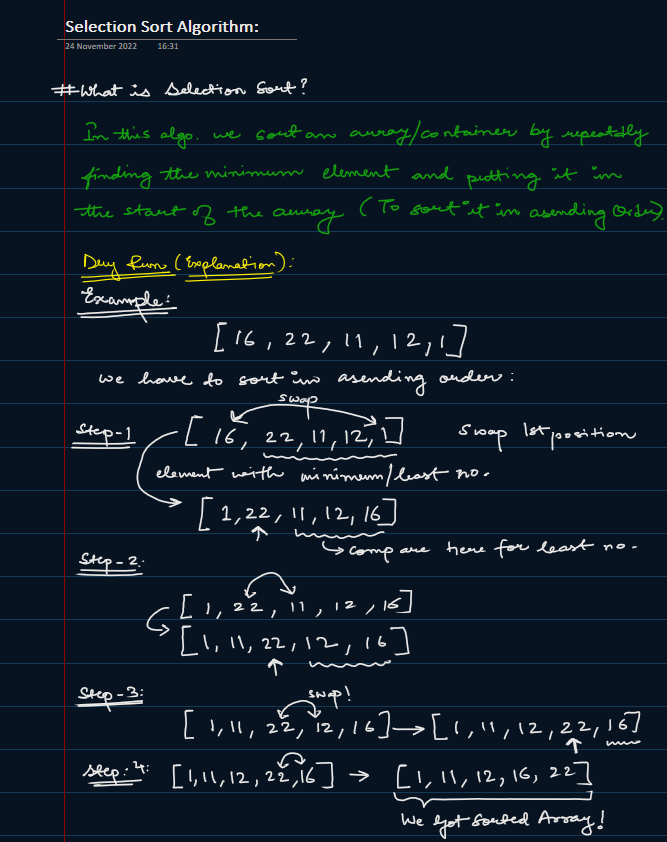 Selection Sort Algorithm:
24 November 2022 16:31
#What is Selection Sort?
In this algo. we sort an array/container by repeatdly
finding the minimum element and putting it in
the start of the array (To sort it in asending Order).
Dry Run (Explanation):
Example:
[16, 22, 11, 12, 1]
we have to sort in asending order:
swap
Step-1 [16, 22, 11, 12, 1] Swap 1st position
element with minimum/least no.
[1, 22, 11, 12, 16]
compare here for least no.
Step-2:
[1, 22, 11, 12, 16]
[1, 11, 22, 12, 16]
Step-3: swap!
[1, 11, 22, 12, 16] → [1, 11, 12, 22, 16]
Step:4: [1, 11, 12, 22, 16] → [1, 11, 12, 16, 22]
We Got Sorted Array!